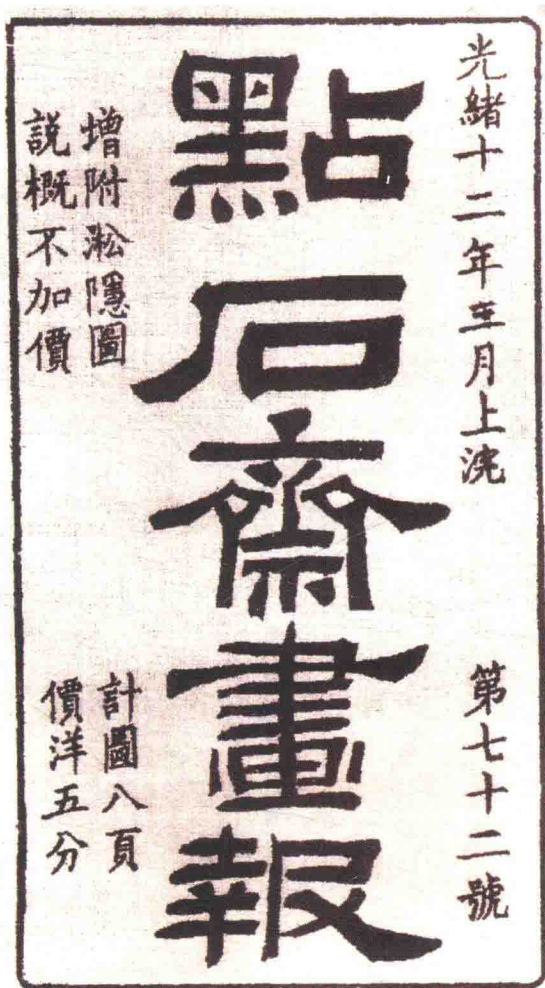 光緒十二年月上浣
第七十二號
點石齋畫報
增附淞隱圖
説概不加價
計圖八頁
價洋五分